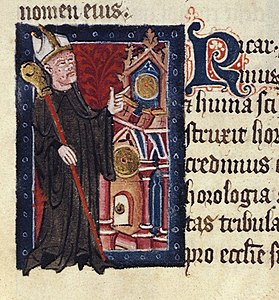 nomen eius.
Ricar
mus
& huma sci
struxit hor
credimus e
horologia a
tas tribula
pro ecclie s